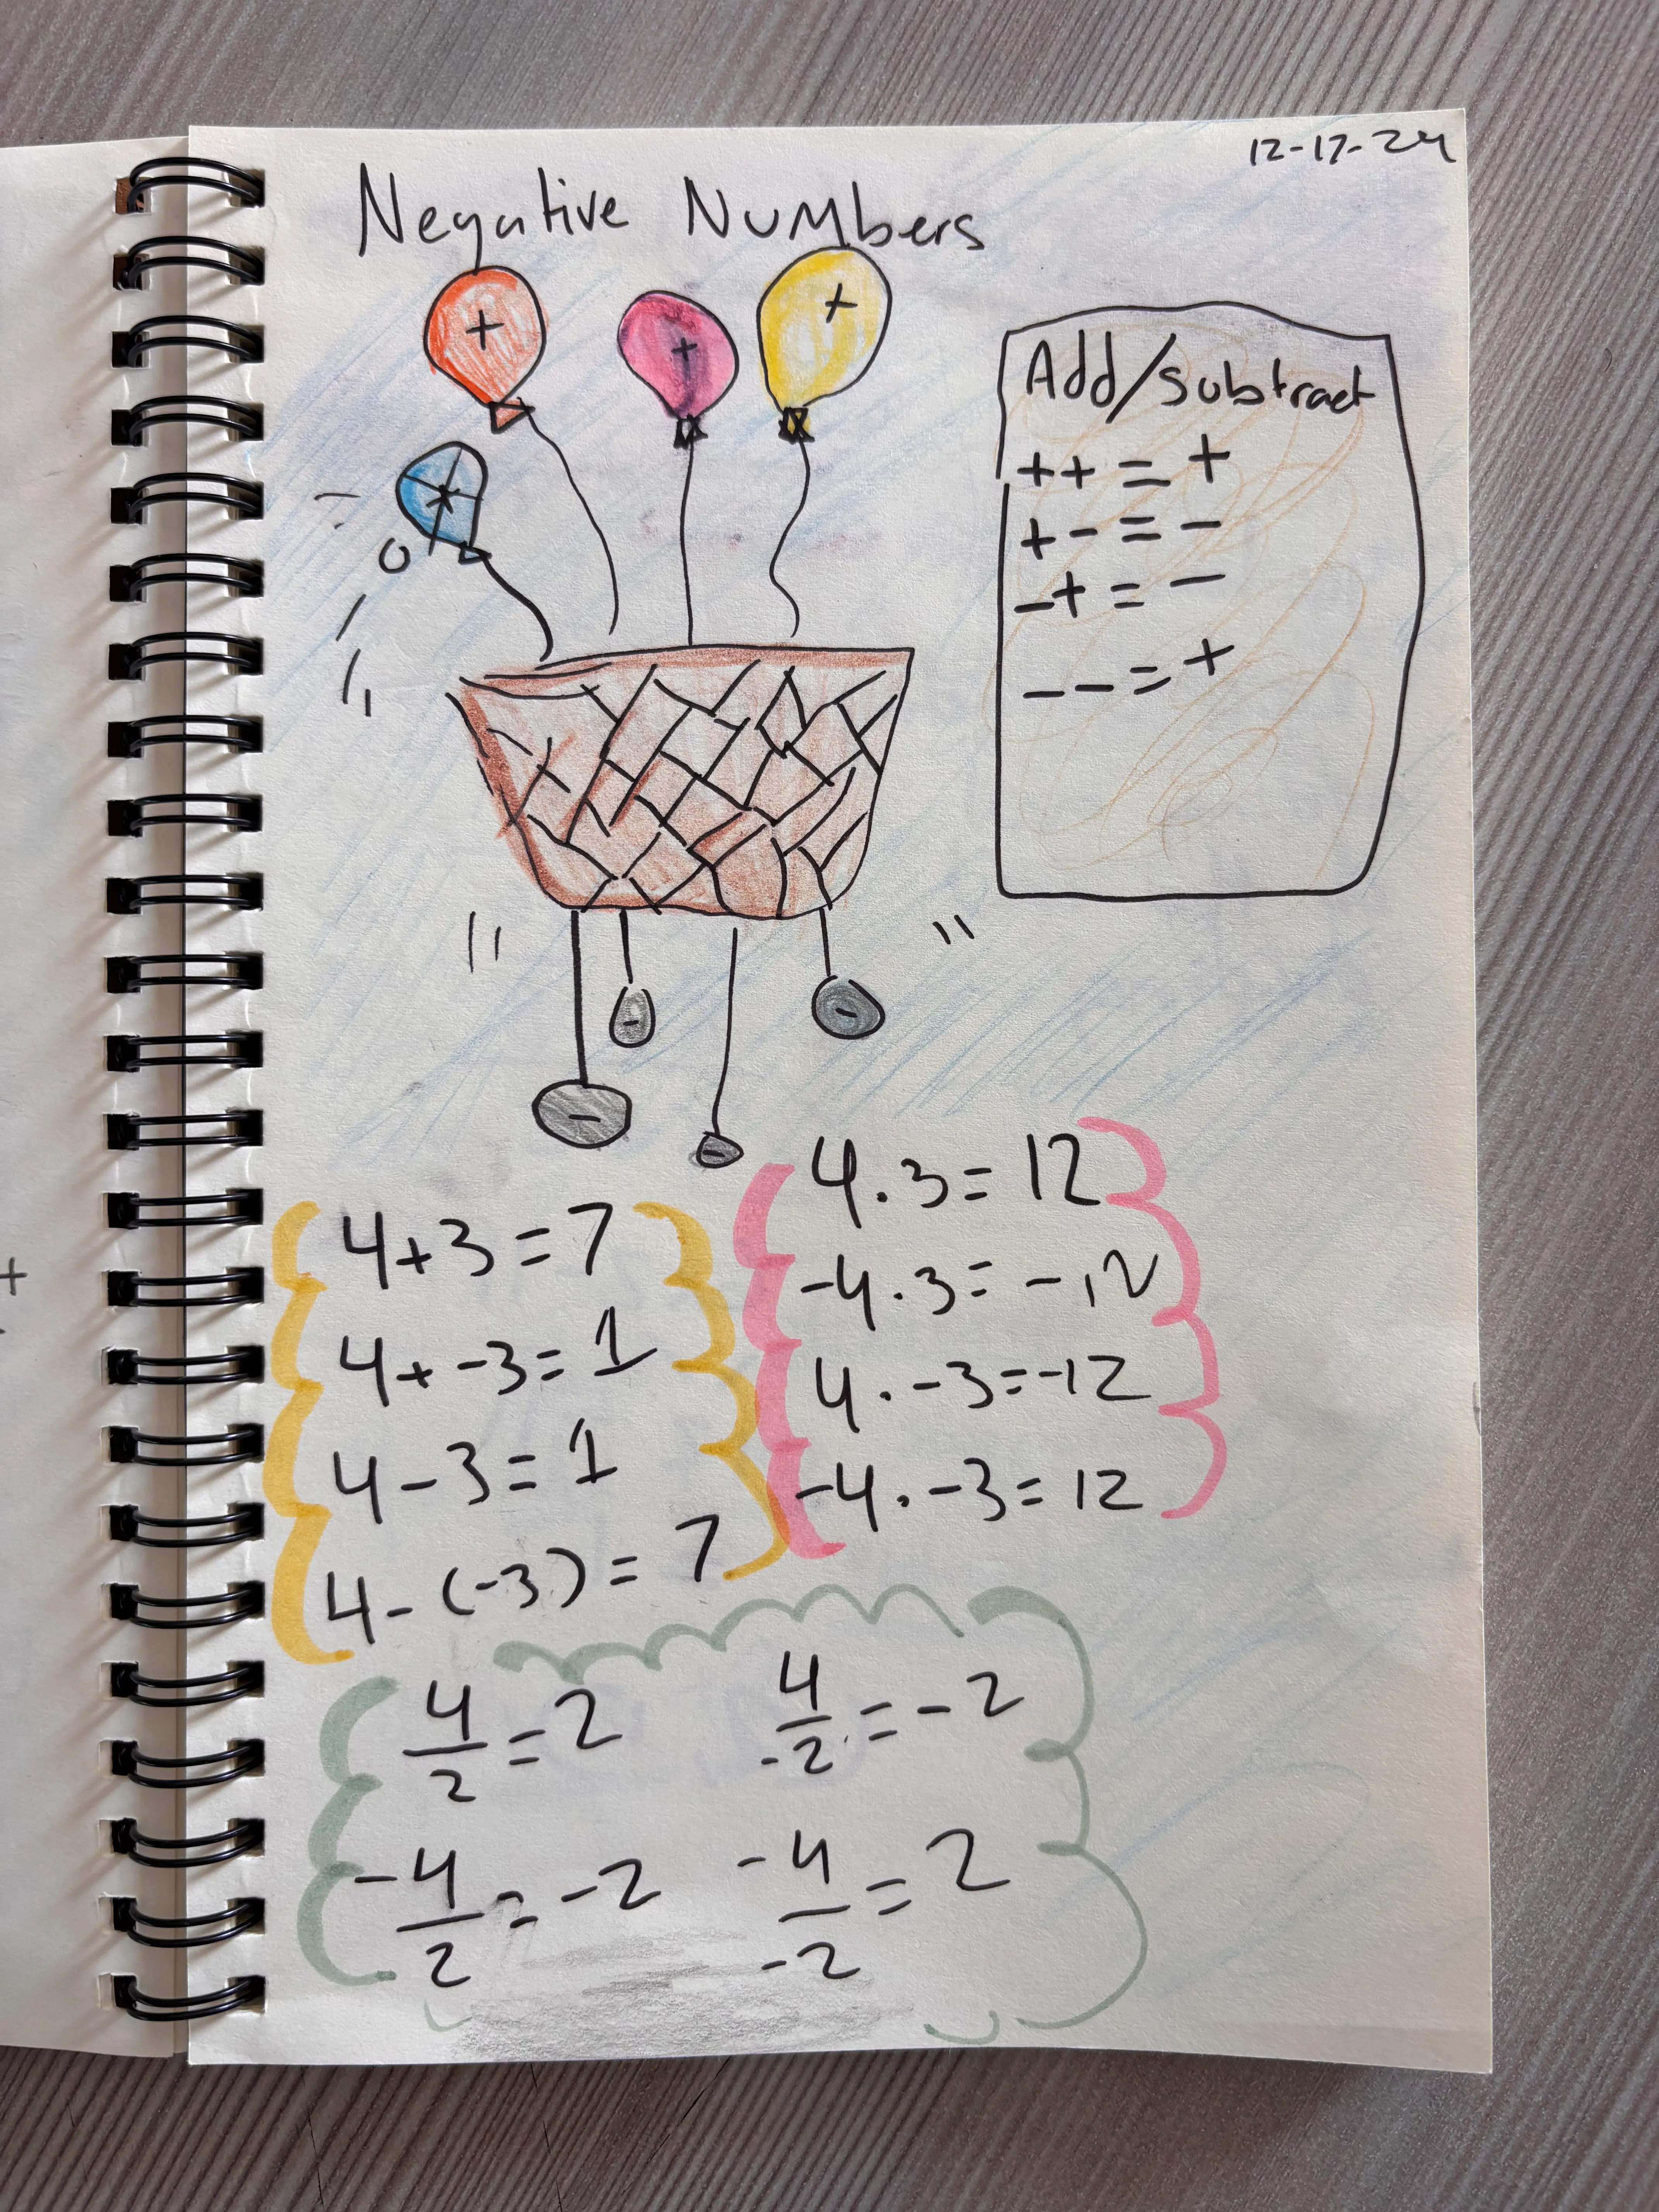 12-17-24
Negative Numbers
+
+
+
+
Add/subtract
++ = +
+- = -
-+ = -
-- = +
-
-
-
-
4+3=7
4+-3=1
4-3=1
4-(-3)=7
4·3=12
-4·3=-12
4·-3=-12
-4·-3=12
4/2=2
4/-2=-2
-4/2=-2
-4/-2=2
+